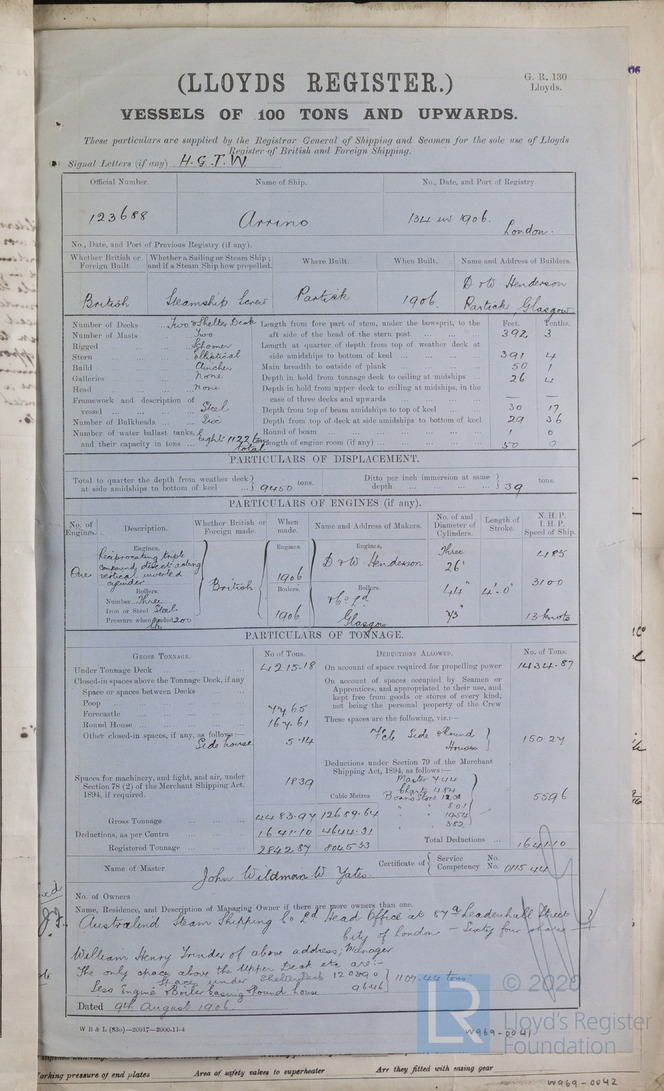 (LLOYDS REGISTER.)
G. R. 130
Lloyds.
VESSELS OF 100 TONS AND UPWARDS.
These particulars are supplied by the Registrar General of Shipping and Seamen for the sole use of Lloyds
Register of British and Foreign Shipping.
Signal Letters (if any) H.G.T.W.
Official Number. Name of Ship. No., Date, and Port of Registry.
123688 Arrino 134 in 1906. London.
No., Date, and Port of Previous Registry (if any).
Whether British or Foreign Built. Whether a Sailing or Steam Ship; and if a Steam Ship how propelled. Where Built. When Built. Name and Address of Builders.
British Steamship Screw Partick 1906 D & W Henderson
Partick, Glasgow
Number of Decks Two & Shelter Deck
Number of Masts Two
Rigged Schooner
Stern elliptical
Build Clincher
Galleries None
Head None
Framework and description of
vessel Steel
Number of Bulkheads
Number of water ballast tanks,
and their capacity in tons Eight 1122 tons total
Feet. Tenths.
Length from fore part of stem, under the bowsprit, to the
aft side of the head of the stern post 392 3
Length at quarter of depth from top of weather deck at
side amidships to bottom of keel 391 4
Main breadth to outside of plank 50 1
Depth in hold from tonnage deck to ceiling at midships 26 4
Depth in hold from upper deck to ceiling at midships, in the
case of three decks and upwards — —
Depth from top of beam amidships to top of keel 30 17
Depth from top of deck at side amidships to bottom of keel 29 36
Round of beam 1 0
Length of engine room (if any) 50 0
PARTICULARS OF DISPLACEMENT.
Total to quarter the depth from weather deck
at side amidships to bottom of keel 9450 tons.
Ditto per inch immersion at same
depth 39 tons.
PARTICULARS OF ENGINES (if any).
No. of Engines. Description. Whether British or Foreign made. When made. Name and Address of Makers. No. of and Diameter of Cylinders. Length of Stroke. N.H.P. I.H.P. Speed of Ship.
Engines. Engines Engines,
One Reciprocating triple
compound, direct acting
vertical inverted
cylinder
British 1906 D & W Henderson
& Co Ld
Glasgow
Three
26"
44"
73"
4'-0"
485
3100
13 knots
Boilers. Boilers. Boilers.
Number Three
Iron or Steel Steel
Pressure when loaded 200 lb
1906
PARTICULARS OF TONNAGE.
GROSS TONNAGE. No of Tons.
Under Tonnage Deck 4215.18
Closed-in spaces above the Tonnage Deck, if any
Space or spaces between Decks
Poop
Forecastle 77.65
Round House 167.61
Other closed-in spaces, if any, as follows:—
Side house 5.14
Spaces for machinery, and light, and air, under
Section 78 (2) of the Merchant Shipping Act,
1894, if required. 18.39
Cubic Metres
Gross Tonnage 4483.97 12689.64
Deductions, as per Contra 1641.10 4644.31
Registered Tonnage 2842.87 8045.33
DEDUCTIONS ALLOWED. No. of Tons.
On account of space required for propelling power 1434.87
On account of spaces occupied by Seamen or
Apprentices, and appropriated to their use, and
kept free from goods or stores of every kind,
not being the personal property of the Crew
These spaces are the following, viz.:—
Fcle Side & Round
Houses 150.27
Deductions under Section 79 of the Merchant
Shipping Act, 1894, as follows:—
Master 7.44
Charts 4.84
Boatns Store
8.01
19.54
3.82
55.96
Total Deductions 1641.10
Name of Master John Wildman W Yates
Certificate of Service No.
Competency No. 011544
No. of Owners
Name, Residence, and Description of Managing Owner if there are more owners than one.
Australind Steam Shipping Co Ld Head Office at 87a Leadenhall Street
City of London — Sixty four shares
William Henry Trinder of above address, Manager
The only spaces above the Upper Deck etc are:-
Space under Shelter Deck 1203.90
Less Engine & Boiler casing & Round house 96.46
1107.44 tons
Dated 9th August 1906
W B & L (83o)—20917—2000-11-4
W969-0041
LR
© 2020
Lloyd's Register
Foundation
orking pressure of end plates Area of safety valves to superheater Are they fitted with easing gear
W969-0042